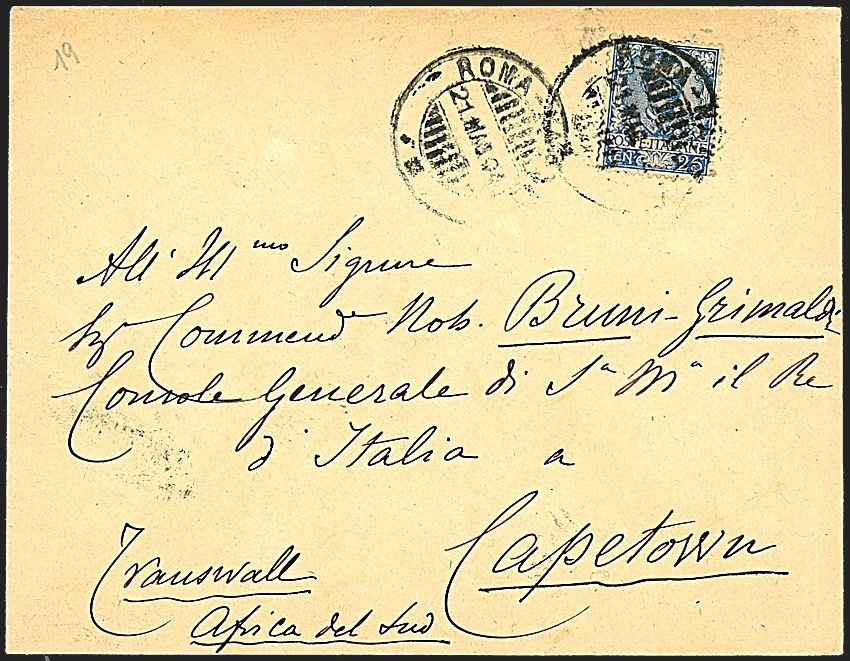 19
ROMA
21 MAR 04
ROMA
POSTE ITALIANE
CEN. 25
All' Ill.mo Signore
Sigr Commendr Nob. Bruni-Grimaldi
Console Generale di Sa Ma il Re
d'Italia a
Capetown
Transwall
Africa del Sud